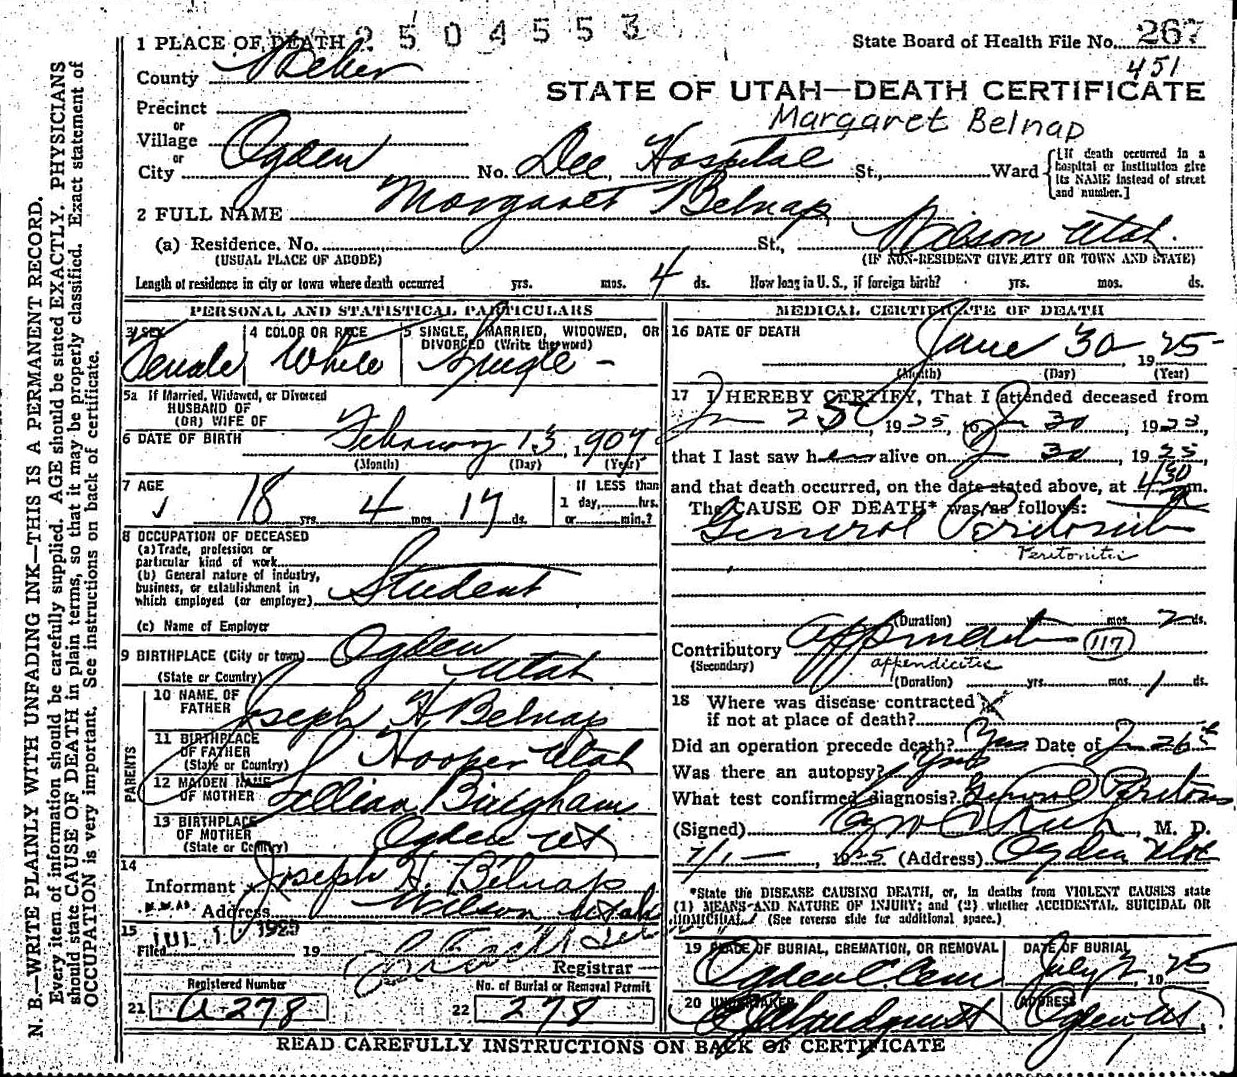 2504553
1 PLACE OF DEATH
State Board of Health File No. 267
451
County Weber
STATE OF UTAH—DEATH CERTIFICATE
Precinct
or
Margaret Belnap
Village
or
City Ogden No. Dee Hospital St., Ward {[If death occurred in a hospital or institution give its NAME instead of street and number.]
2 FULL NAME Margaret Belnap
(a) Residence, No. St., Wilson Utah.
(USUAL PLACE OF ABODE) (IF NON-RESIDENT GIVE CITY OR TOWN AND STATE)
Length of residence in city or town where death occurred yrs. mos. 4 ds. How long in U. S., if foreign birth? yrs. mos. ds.
PERSONAL AND STATISTICAL PARTICULARS
3 SEX Female
4 COLOR OR RACE White
5 SINGLE, MARRIED, WIDOWED, OR DIVORCED (Write the word) Single
5a If Married, Widowed, or Divorced
HUSBAND OF
(OR) WIFE OF
6 DATE OF BIRTH February 13, 1907
(Month) (Day) (Year)
7 AGE 18 yrs. 4 mos. 17 ds.
If LESS than
1 day, hrs.
or min.?
8 OCCUPATION OF DECEASED
(a) Trade, profession or
particular kind of work
(b) General nature of industry,
business, or establishment in
which employed (or employer) Student
(c) Name of Employer
9 BIRTHPLACE (City or town) Ogden
(State or Country) Utah
PARENTS
10 NAME OF
FATHER Joseph H. Belnap
11 BIRTHPLACE
OF FATHER
(State or Country) Hooper Utah
12 MAIDEN NAME
OF MOTHER Lillian Bingham
13 BIRTHPLACE
OF MOTHER
(State or Country) Ogden Ut
14
Informant Joseph H. Belnap
Address Wilson Utah
15
Filed JUL 1925 19
Registrar
Registered Number
21 a-278
No. of Burial or Removal Permit
22 278
MEDICAL CERTIFICATE OF DEATH
16 DATE OF DEATH June 30 1925
(Month) (Day) (Year)
17 I HEREBY CERTIFY, That I attended deceased from
1925 to 30, 1925
that I last saw her alive on 30, 1925,
and that death occurred, on the date stated above, at 430 m.
The CAUSE OF DEATH* was as follows:
General Peritonitis
Peritonitis
(Duration) yrs. mos. 2 ds.
Contributory Appendicitis (117)
(Secondary) appendicitis
(Duration) yrs. mos. 1 ds.
18 Where was disease contracted
if not at place of death?
Did an operation precede death? Yes Date of 26
Was there an autopsy?
What test confirmed diagnosis? General Peritonitis
(Signed) , M. D.
7/1 , 1925 (Address) Ogden Utah
*State the DISEASE CAUSING DEATH, or, in deaths from VIOLENT CAUSES state
(1) MEANS AND NATURE OF INJURY; and (2) whether ACCIDENTAL, SUICIDAL OR
HOMICIDAL. (See reverse side for additional space.)
19 PLACE OF BURIAL, CREMATION, OR REMOVAL Ogden Cem
DATE OF BURIAL July 2, 1925
20 UNDERTAKER
ADDRESS Ogden Ut.
READ CAREFULLY INSTRUCTIONS ON BACK OF CERTIFICATE
N. B.—WRITE PLAINLY WITH UNFADING INK—THIS IS A PERMANENT RECORD.
Every item of information should be carefully supplied. AGE should be stated EXACTLY. PHYSICIANS
should state CAUSE OF DEATH in plain terms, so that it may be properly classified. Exact statement of
OCCUPATION is very important. See instructions on back of certificate.